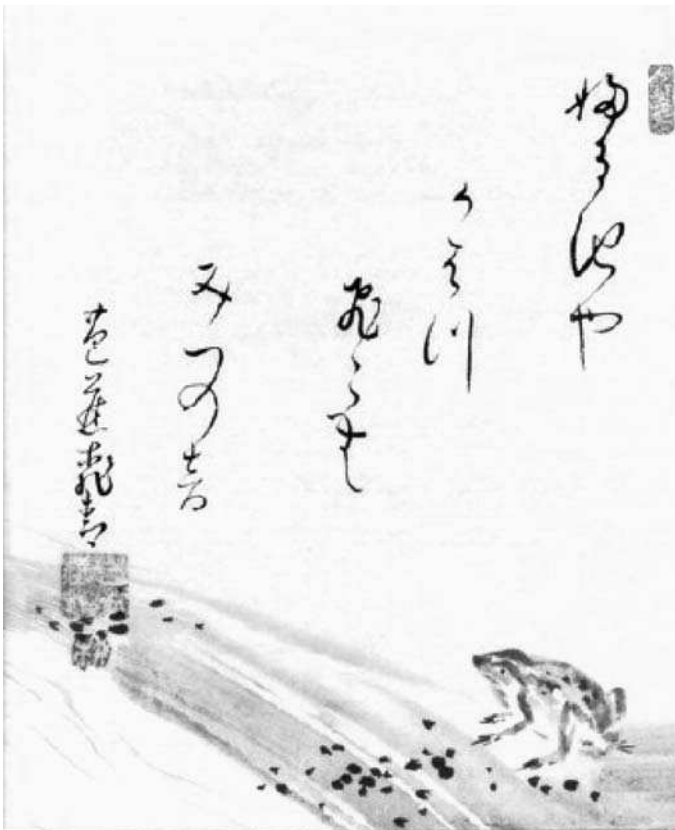 ふる池や
かはつ
飛こむ
みつの音
芭蕉桃青